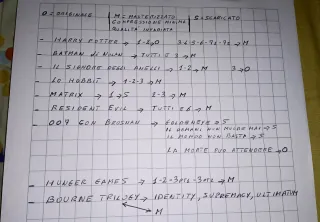 O = ORIGINALE M = MASTERIZZATO S = SCARICATO
COMPRESSIONE MINIMA
QUALITÀ INVARIATA
- HARRY POTTER → 1-2→O 3-4-5-6-7.1-7.2→M
- BATMAN di NOLAN → TUTTI E 3→M
- IL SIGNORE DEGLI ANELLI → 1-2→M 3→O
- LO HOBBIT → 1-2-3→M
- MATRIX → 1→S 1-3→M
- RESIDENT EVIL → TUTTI E 6→M
- 007 CON BROSNAN → GOLDENEYE→S
IL DOMANI NON MUORE MAI→S
IL MONDO NON BASTA→S
LA MORTE PUÒ ATTENDERE→O
- HUNGER GAMES → 1-2-3PT1-3PT2→M
- BOURNE TRILOGY → IDENTITY, SUPREMACY, ULTIMATUM
M